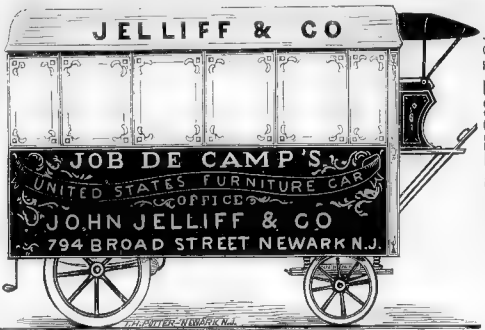 JELLIFF & CO
JOB DE CAMP'S
UNITED STATES FURNITURE CAR
OFFICE
JOHN JELLIFF & CO
794 BROAD STREET NEWARK N.J.
T.H. POTTER-NEWARK N.J.